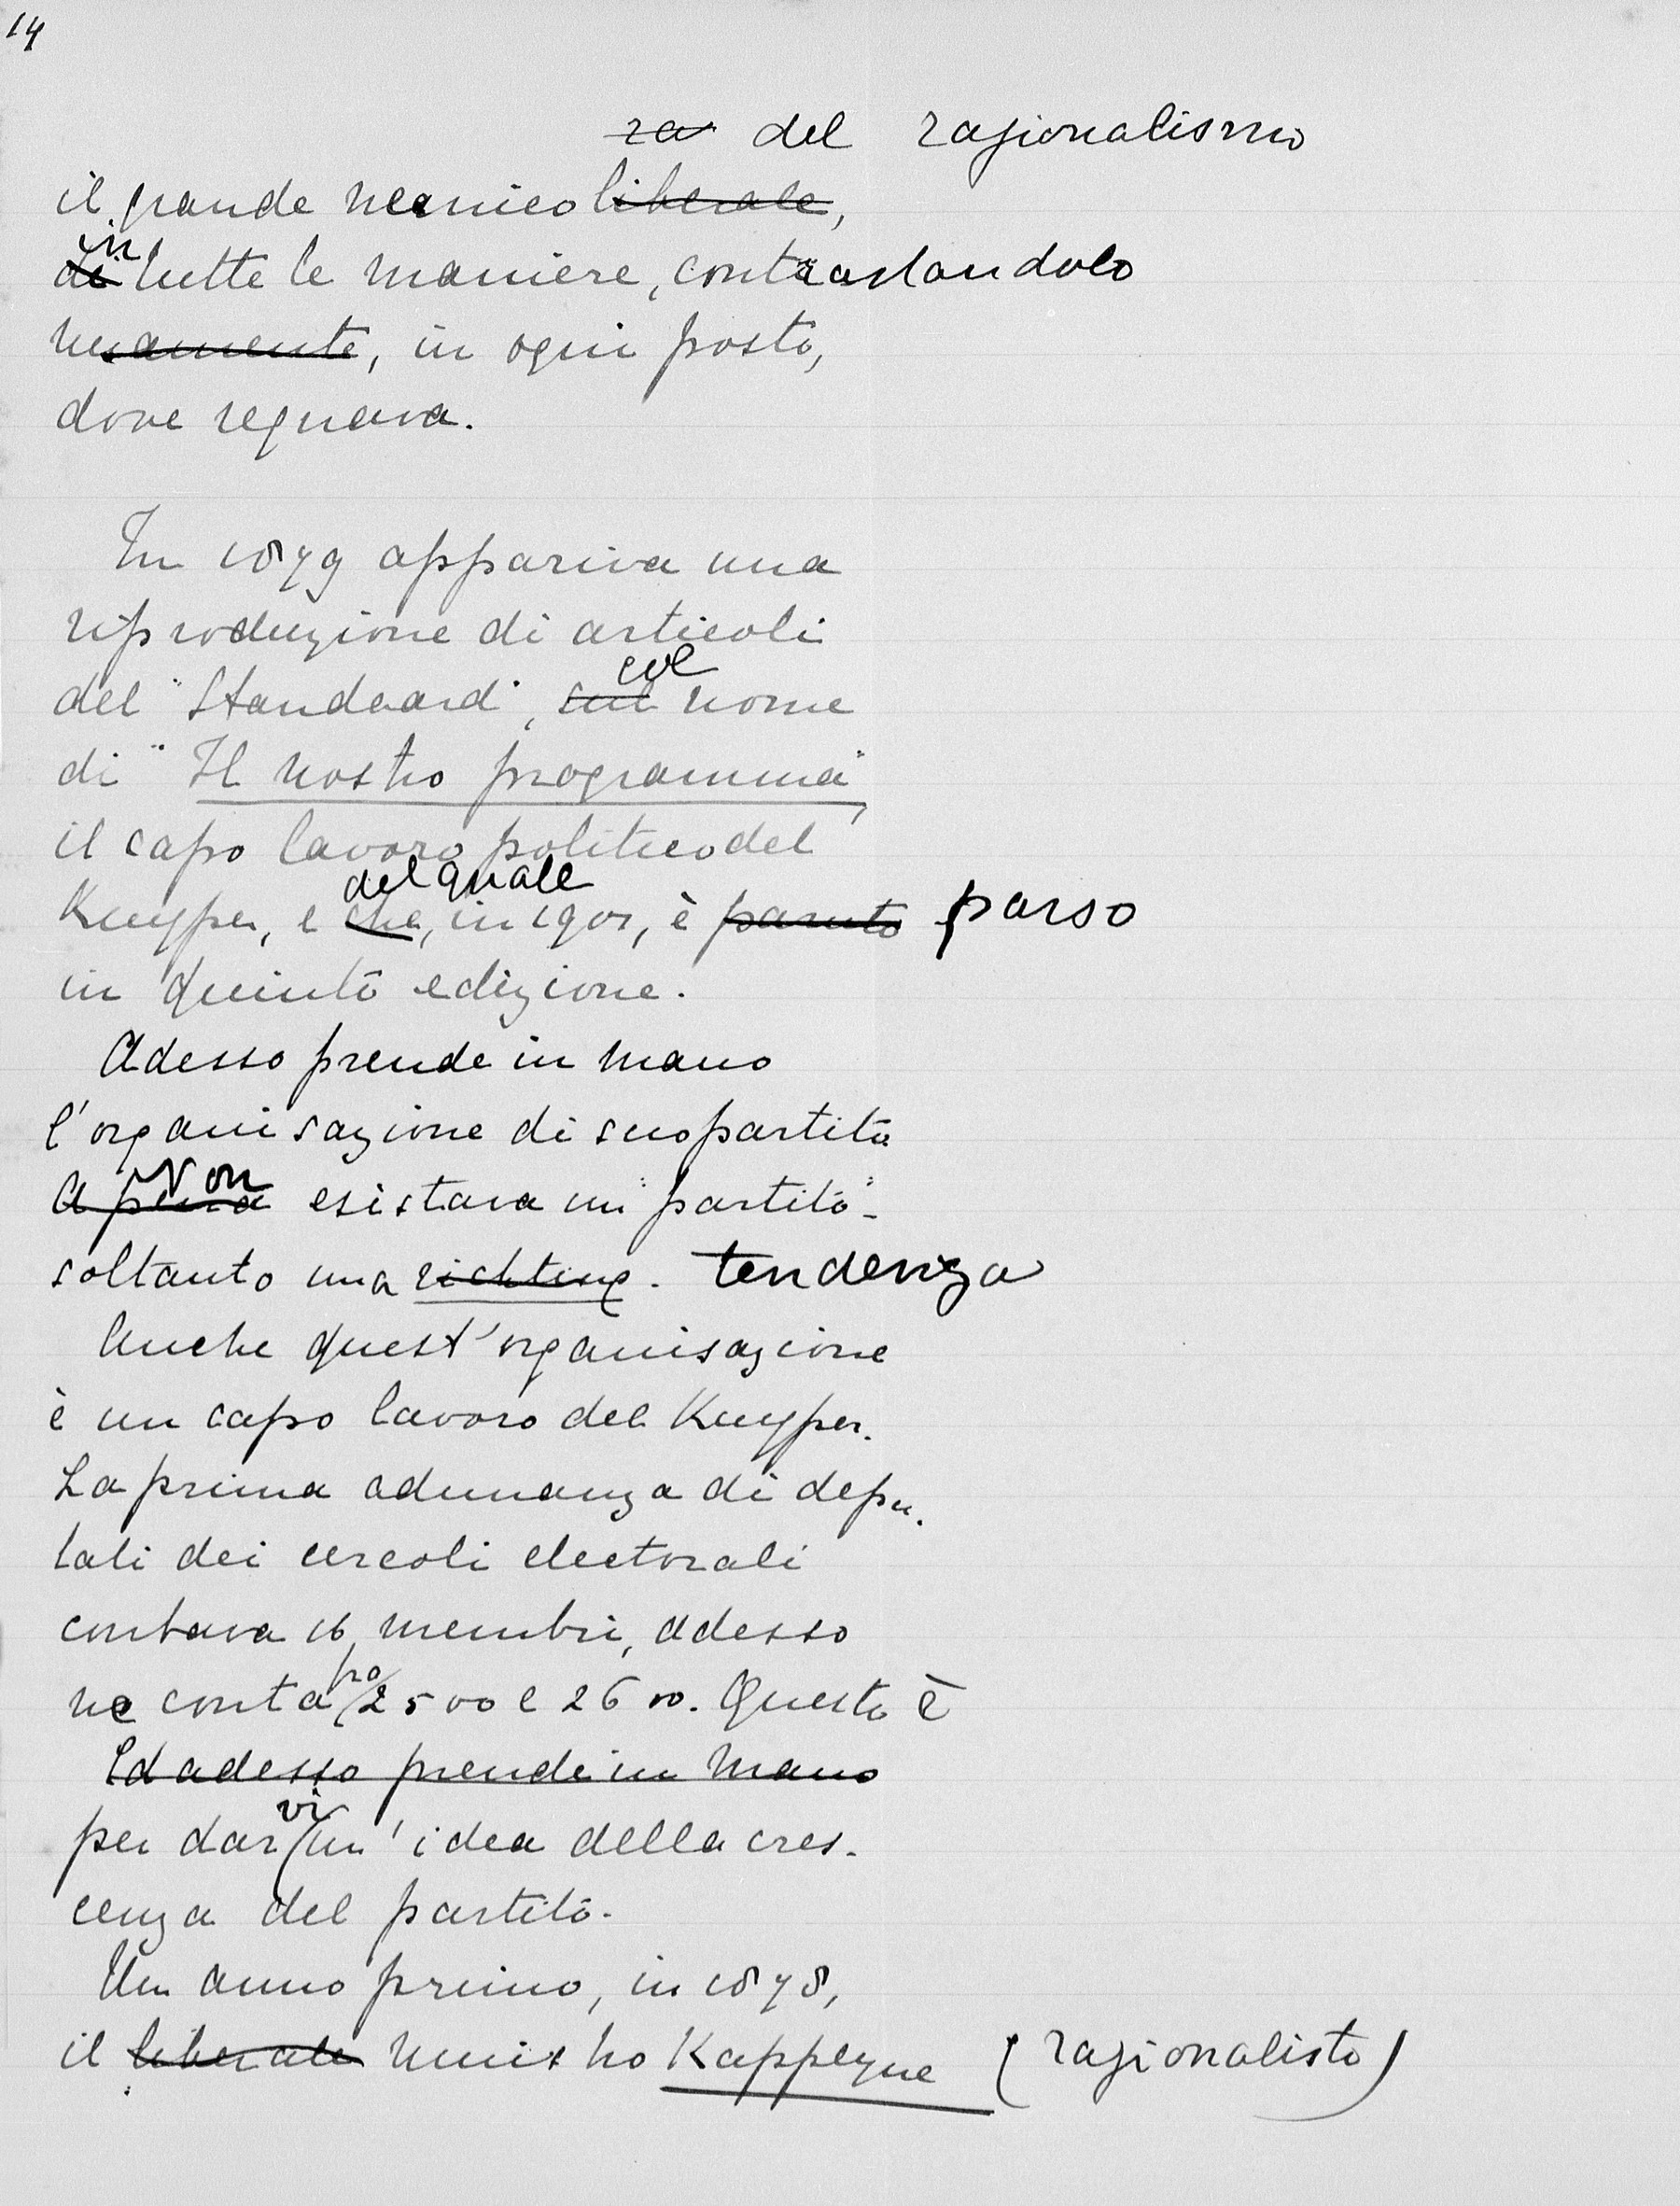 14
ra del razionalismo
il grande nemico liberale,
di in tutte le maniere, contrastandolo
in ogni posto,
dove regnava.
In 1879 appariva una
riproduzione di articoli
del "Standaard", sul col nome
di "Il nostro programma",
il capo lavoro politico del
Kuyper, e che del quale, in 1907, è paruto parso
in quinto edizione.
Adesso prende in mano
l'organisazione di suo partito
A pena Non esistava un "partito"-
soltanto una richting. tendenza
Anche quest'organisazione
è un capo lavoro del Kuyper.
La prima adunanza di depu-
tati dei circoli electorali
contava 16 membri, adesso
ne conta fra 2500 e 2600. Questo è
Ed adesso prende in mano
per darvi un' idea della cres-
cenza del partito.
Un anno primo, in 1878,
il liberale ministro Kappeyne (razionalisto)